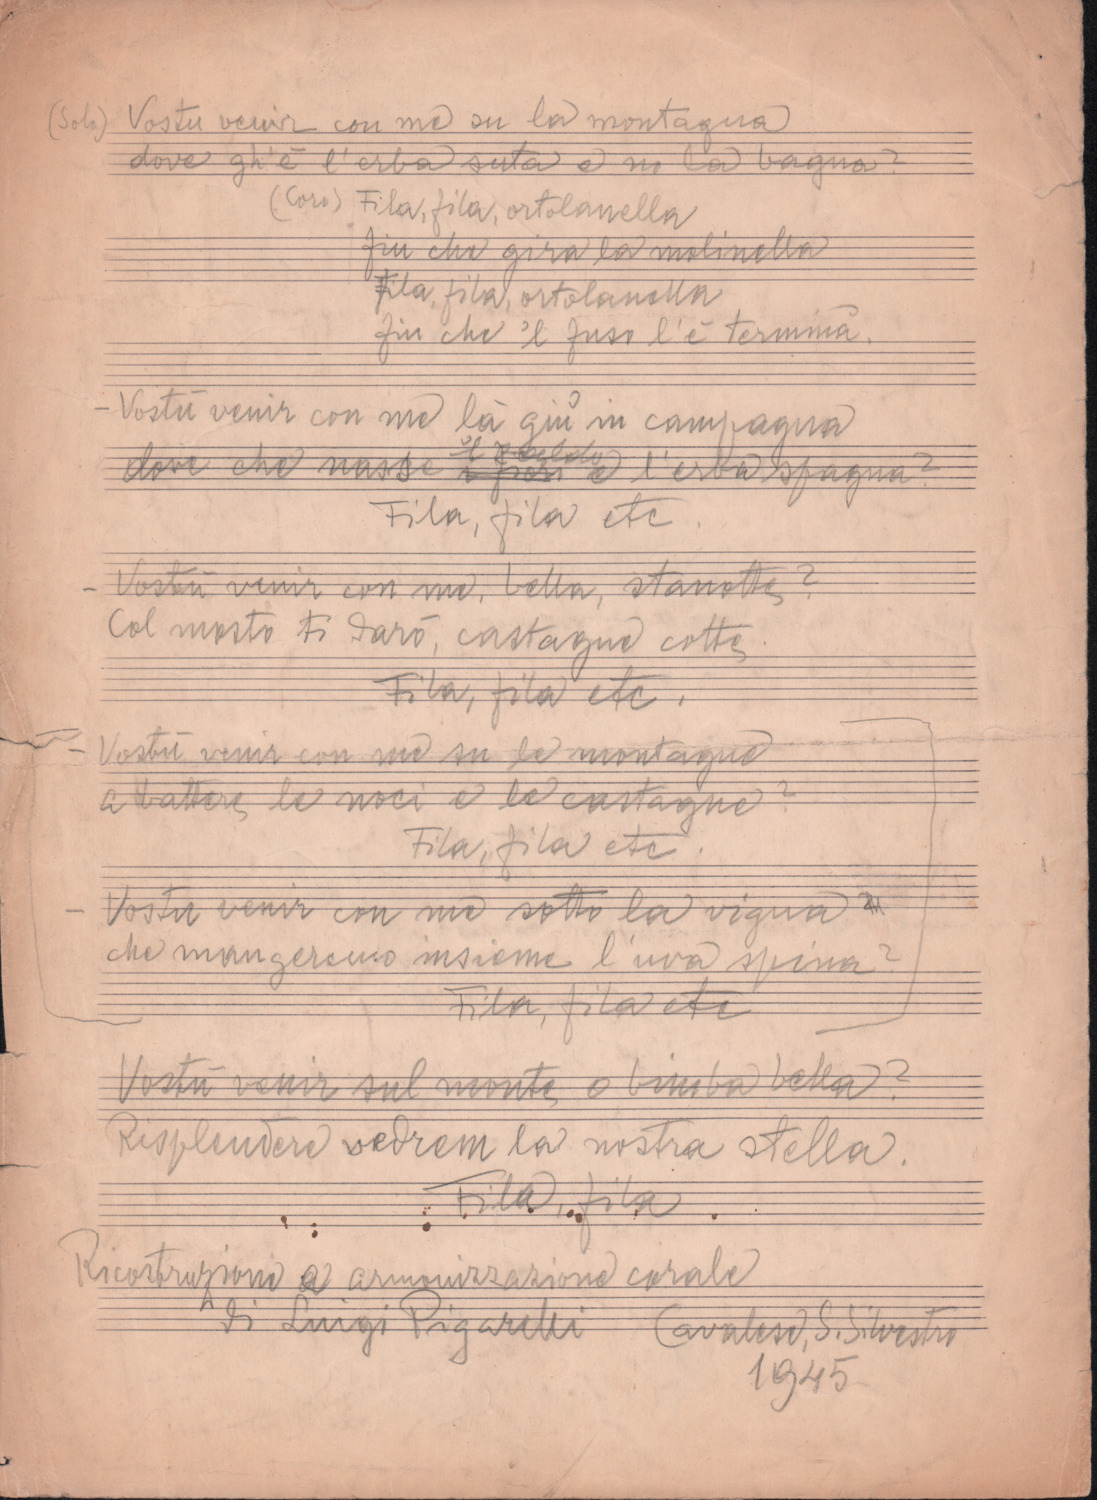 (Solo) Vostu venir con me su la montagna
dove gh'è l'erba suta e no la bagna?
(Coro) Fila, fila, ortolanella
fin che gira la molinella
Fila, fila, ortolanella
fin che 'l fuso l'è terminà.
- Vostù venir con me là giù in campagna
il
dove che nasse i fiori e l'erba spagna?
Fila, fila etc.
- Vostù venir con me, bella, stanotte?
Col mosto ti darò, castagne cotte.
Fila, fila etc.
- Vostù venir con me su le montagne
a battere le noci e le castagne?
Fila, fila etc.
- Vostu venir con me sotto la vigna
che mangeremo insieme l'uva spina?
Fila, fila etc
Vostù venir sul monte o bimba bella?
Risplendere vedrem la nostra stella.
Fila, fila
Ricostruzione e armonizzazione corale
di Luigi Pigarelli Cavalese, S. Silvestro
1945